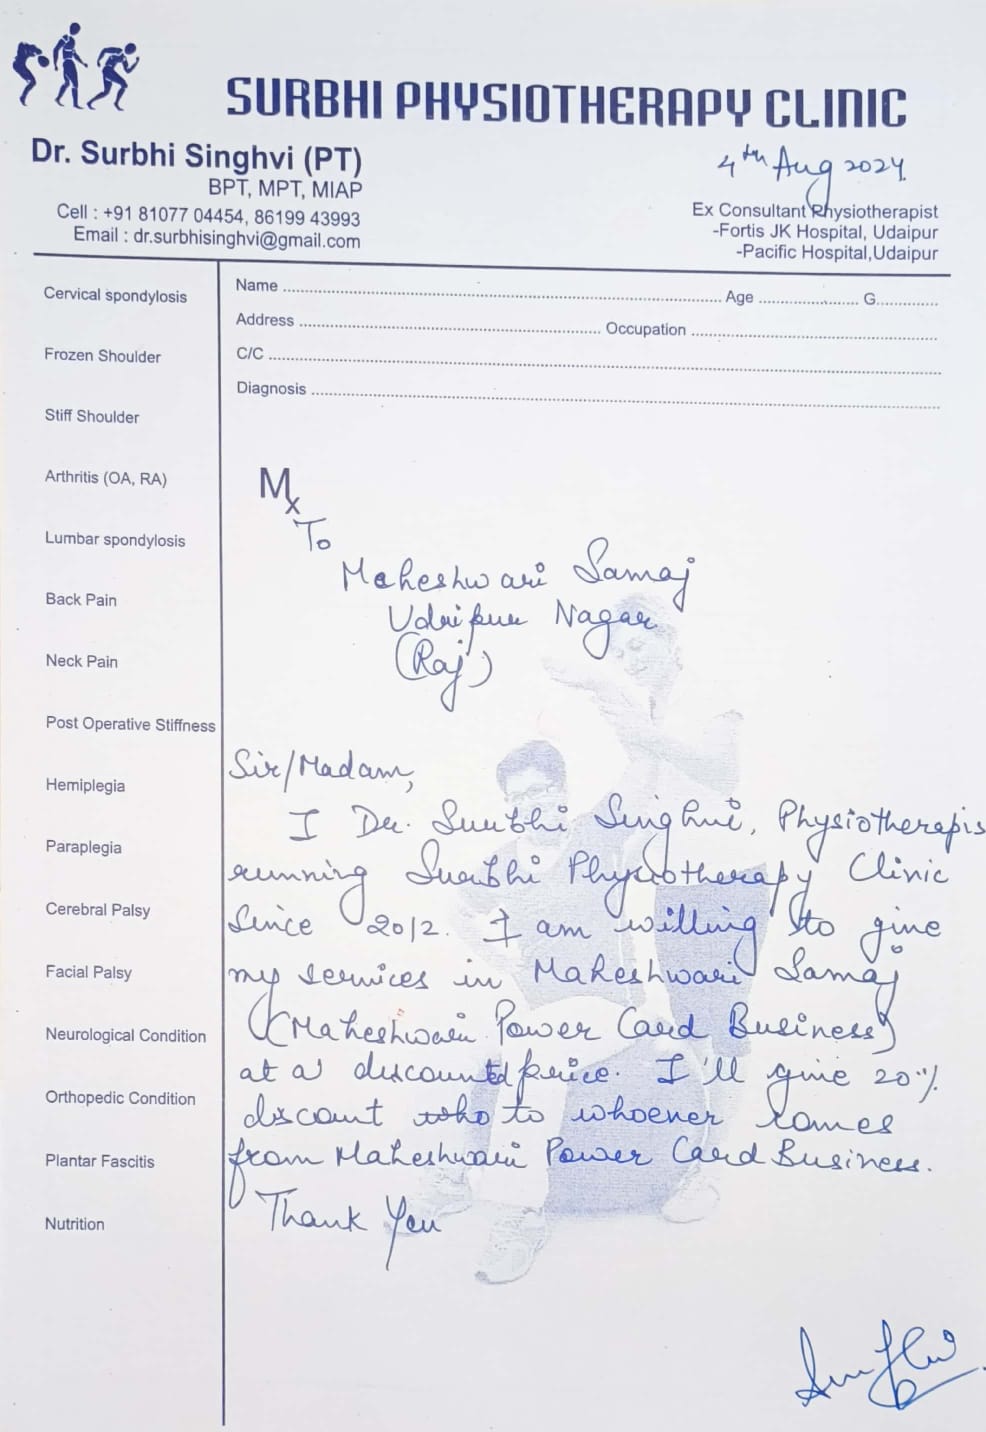 SURBHI PHYSIOTHERAPY CLINIC
Dr. Surbhi Singhvi (PT)
BPT, MPT, MIAP
Cell : +91 81077 04454, 86199 43993
Email : dr.surbhisinghvi@gmail.com
4th Aug 2024
Ex Consultant Physiotherapist
-Fortis JK Hospital, Udaipur
-Pacific Hospital,Udaipur
Cervical spondylosis
Frozen Shoulder
Stiff Shoulder
Arthritis (OA, RA)
Lumbar spondylosis
Back Pain
Neck Pain
Post Operative Stiffness
Hemiplegia
Paraplegia
Cerebral Palsy
Facial Palsy
Neurological Condition
Orthopedic Condition
Plantar Fascitis
Nutrition
Name ........ Age ........ G........
Address ........ Occupation ........
C/C ........
Diagnosis ........
Mx
To
Maheshwari Samaj
Udaipur Nagar
(Raj)
Sir/Madam,
I Dr. Surbhi Singhvi, Physiotherapis
running Surbhi Physiotherapy Clinic
since 2012. I am willing to give
my services in Maheshwari Samaj
(Maheshwari Power Card Business)
at a discounted price. I'll give 20%
discount who to whoever comes
from Maheshwari Power Card Business.
Thank You